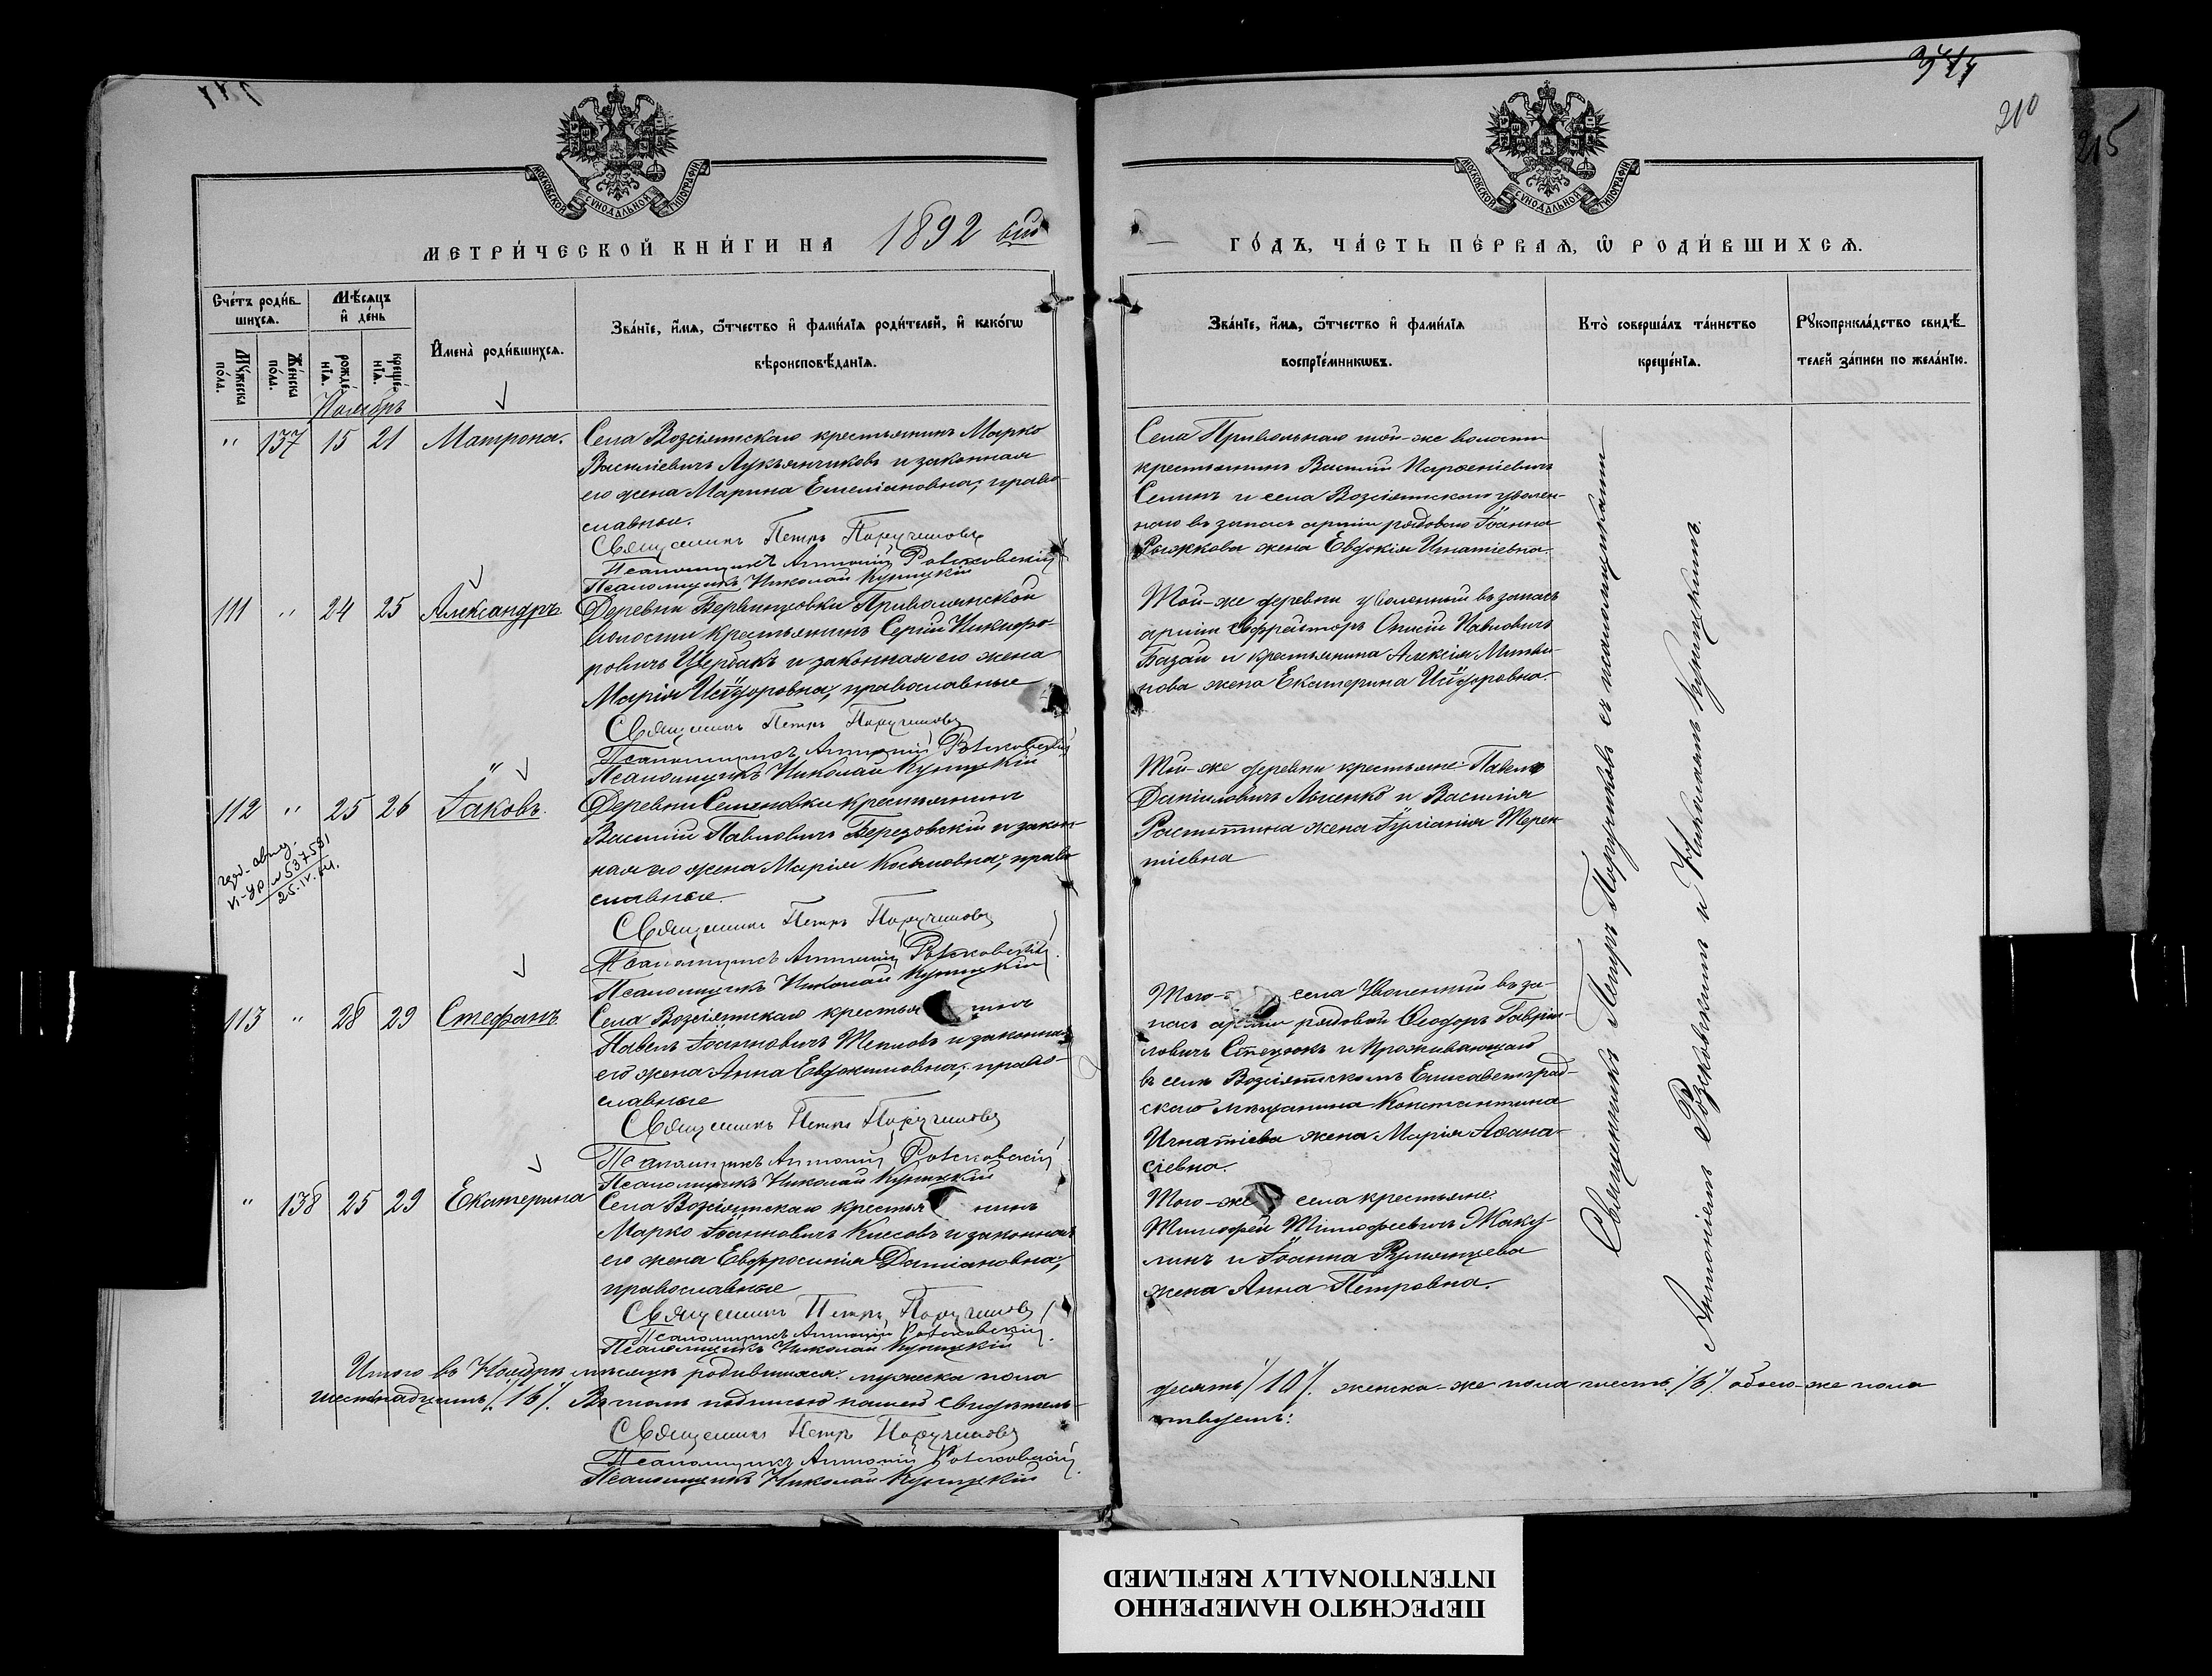 377
210
215
МОСКОВСКОЙ СУНОДАЛЬНОЙ ТИПОГРАФІИ
МОСКОВСКОЙ СУНОДАЛЬНОЙ ТИПОГРАФІИ
МЕТРИ́ЧЕСКОЙ КНИ́ГИ НА 1892 ый
ГО́ДЪ, ЧА́СТЬ ПЕ́РВАЯ, Ѿ РОДИ́ВШИХСЯ.
Сче́тъ роди́в-
шихся.
Мѣ́сяцъ
и҆ де́нь
Му́жеска по́ла.
Же́нска по́ла.
рожде́-нїя.
креще́-нїя.
И҆мена̀ роди́вшихся.
Зва́нїе, и҆́мя, ѻ҆́тчество и҆ фами́лїя роди́телей, и҆ како́гѡ
вѣроисповѣ́данїя.
Зва́нїе, и҆́мя, ѻ҆́тчество и҆ фами́лїя
воспрїе́мникѡвъ.
Кто̀ соверша́лъ та́инство
креще́нїя.
Рꙋкоприкла́дство свидѣ́-
телей за́писи по жела́нїю.
Ноябрь
" 137 15 21 Матрона.
Села Возсіятскаго крестьянинъ Марко
Василіевичъ Лукьянчиковъ и законная
его жена Марина Емеліановна, право-
славные.
Священникъ Петръ Поручиковъ
Псаломщикъ Антоній Рогсковскій
Псаломщикъ Николай Куницкій
Села Привольнаго той-же волости
крестьянинъ Василій Парѳеніевичъ
Семинъ и села Возсіятскаго уволен-
наго въ запасъ арміи рядоваго Іоанна
Рыжкова жена Евдокія Игнатіевна.
111 " 24 25 Александръ
Деревни Бервинцовки Привольянской
волости крестьянинъ Сергій Никифо-
ровичъ Щербакъ и законная его жена
Марія Исидоровна, православные
Священникъ Петръ Поручиковъ
Псаломщикъ Антоній Рогсковскій
Псаломщикъ Николай Куницкій
Той-же деревни уволенный въ запасъ
арміи Ефрейторъ Онисій Павловичъ
Базай и крестьянина Алексія Литви-
нова жена Екатерина Исидоровна.
112 " 25 26 Іаковъ.
№ 537591
25.IV.
Деревни Семеновки крестьянинъ
Василій Павловичъ Березовскій и закон-
ная его жена Марія Косьмовна, право
славные.
Священникъ Петръ Поручиковъ
Псаломщикъ Антоній Рогсковскій
Псаломщикъ Николай Куницкій
Той-же деревни крестьяне: Павелъ
Даніиловичъ Лысенко и Василія
жена Іуліанія Терен
тіевна
113 " 28 29 Стефанъ
Села Возсіятскаго крестья нинъ
Павелъ Іоанновичъ Тепловъ и законная
его жена Анна Евдокимовна, право-
славные
Священникъ Петръ Поручиковъ
Псаломщикъ Антоній Рогсковскій
Псаломщикъ Николай Куницкій
Того- села Уволенный въ за-
пасъ арміи рядовой Ѳеодоръ Гаврі-
ловичъ Стецюкъ и Проживающаго
въ селѣ Возсіятскомъ Елисаветград-
скаго мѣщанина Константина
Игнатіева жена Марія Аѳана-
сіевна.
" 138 25 29 Екатерина
Села Возсіятскаго крестья нинъ
Марко Іоанновичъ Киссовъ и законная
его жена Евфросинія Даміановна,
православные
Священникъ Петръ Поручиковъ
Псаломщикъ Антоній Рогсковскій
Псаломщикъ Николай Куницкій
Того-же села крестьяне:
Тимофей Тимофеевичъ Жаку-
линъ и Іоанна Румянцева
жена Анна Петровна.
Священникъ Петръ Поручиковъ съ псаломщиками
Антоніемъ Рогсковскимъ и Николаемъ Куницкимъ.
Итого въ Ноябрѣ мѣсяцѣ родившихся: мужеска пола
десять /10/. женска-же пола шесть /6/. обоего-же пола
шестьнадцать /16/. Въ томъ подписью нашею свидѣтель-
ствуемъ:
Священникъ Петръ Поручиковъ
Псаломщикъ Антоній Рогсковскій
Псаломщикъ Николай Куницкій
ПЕРЕСНЯТО НАМЕРЕННО
INTENTIONALLY REFILMED